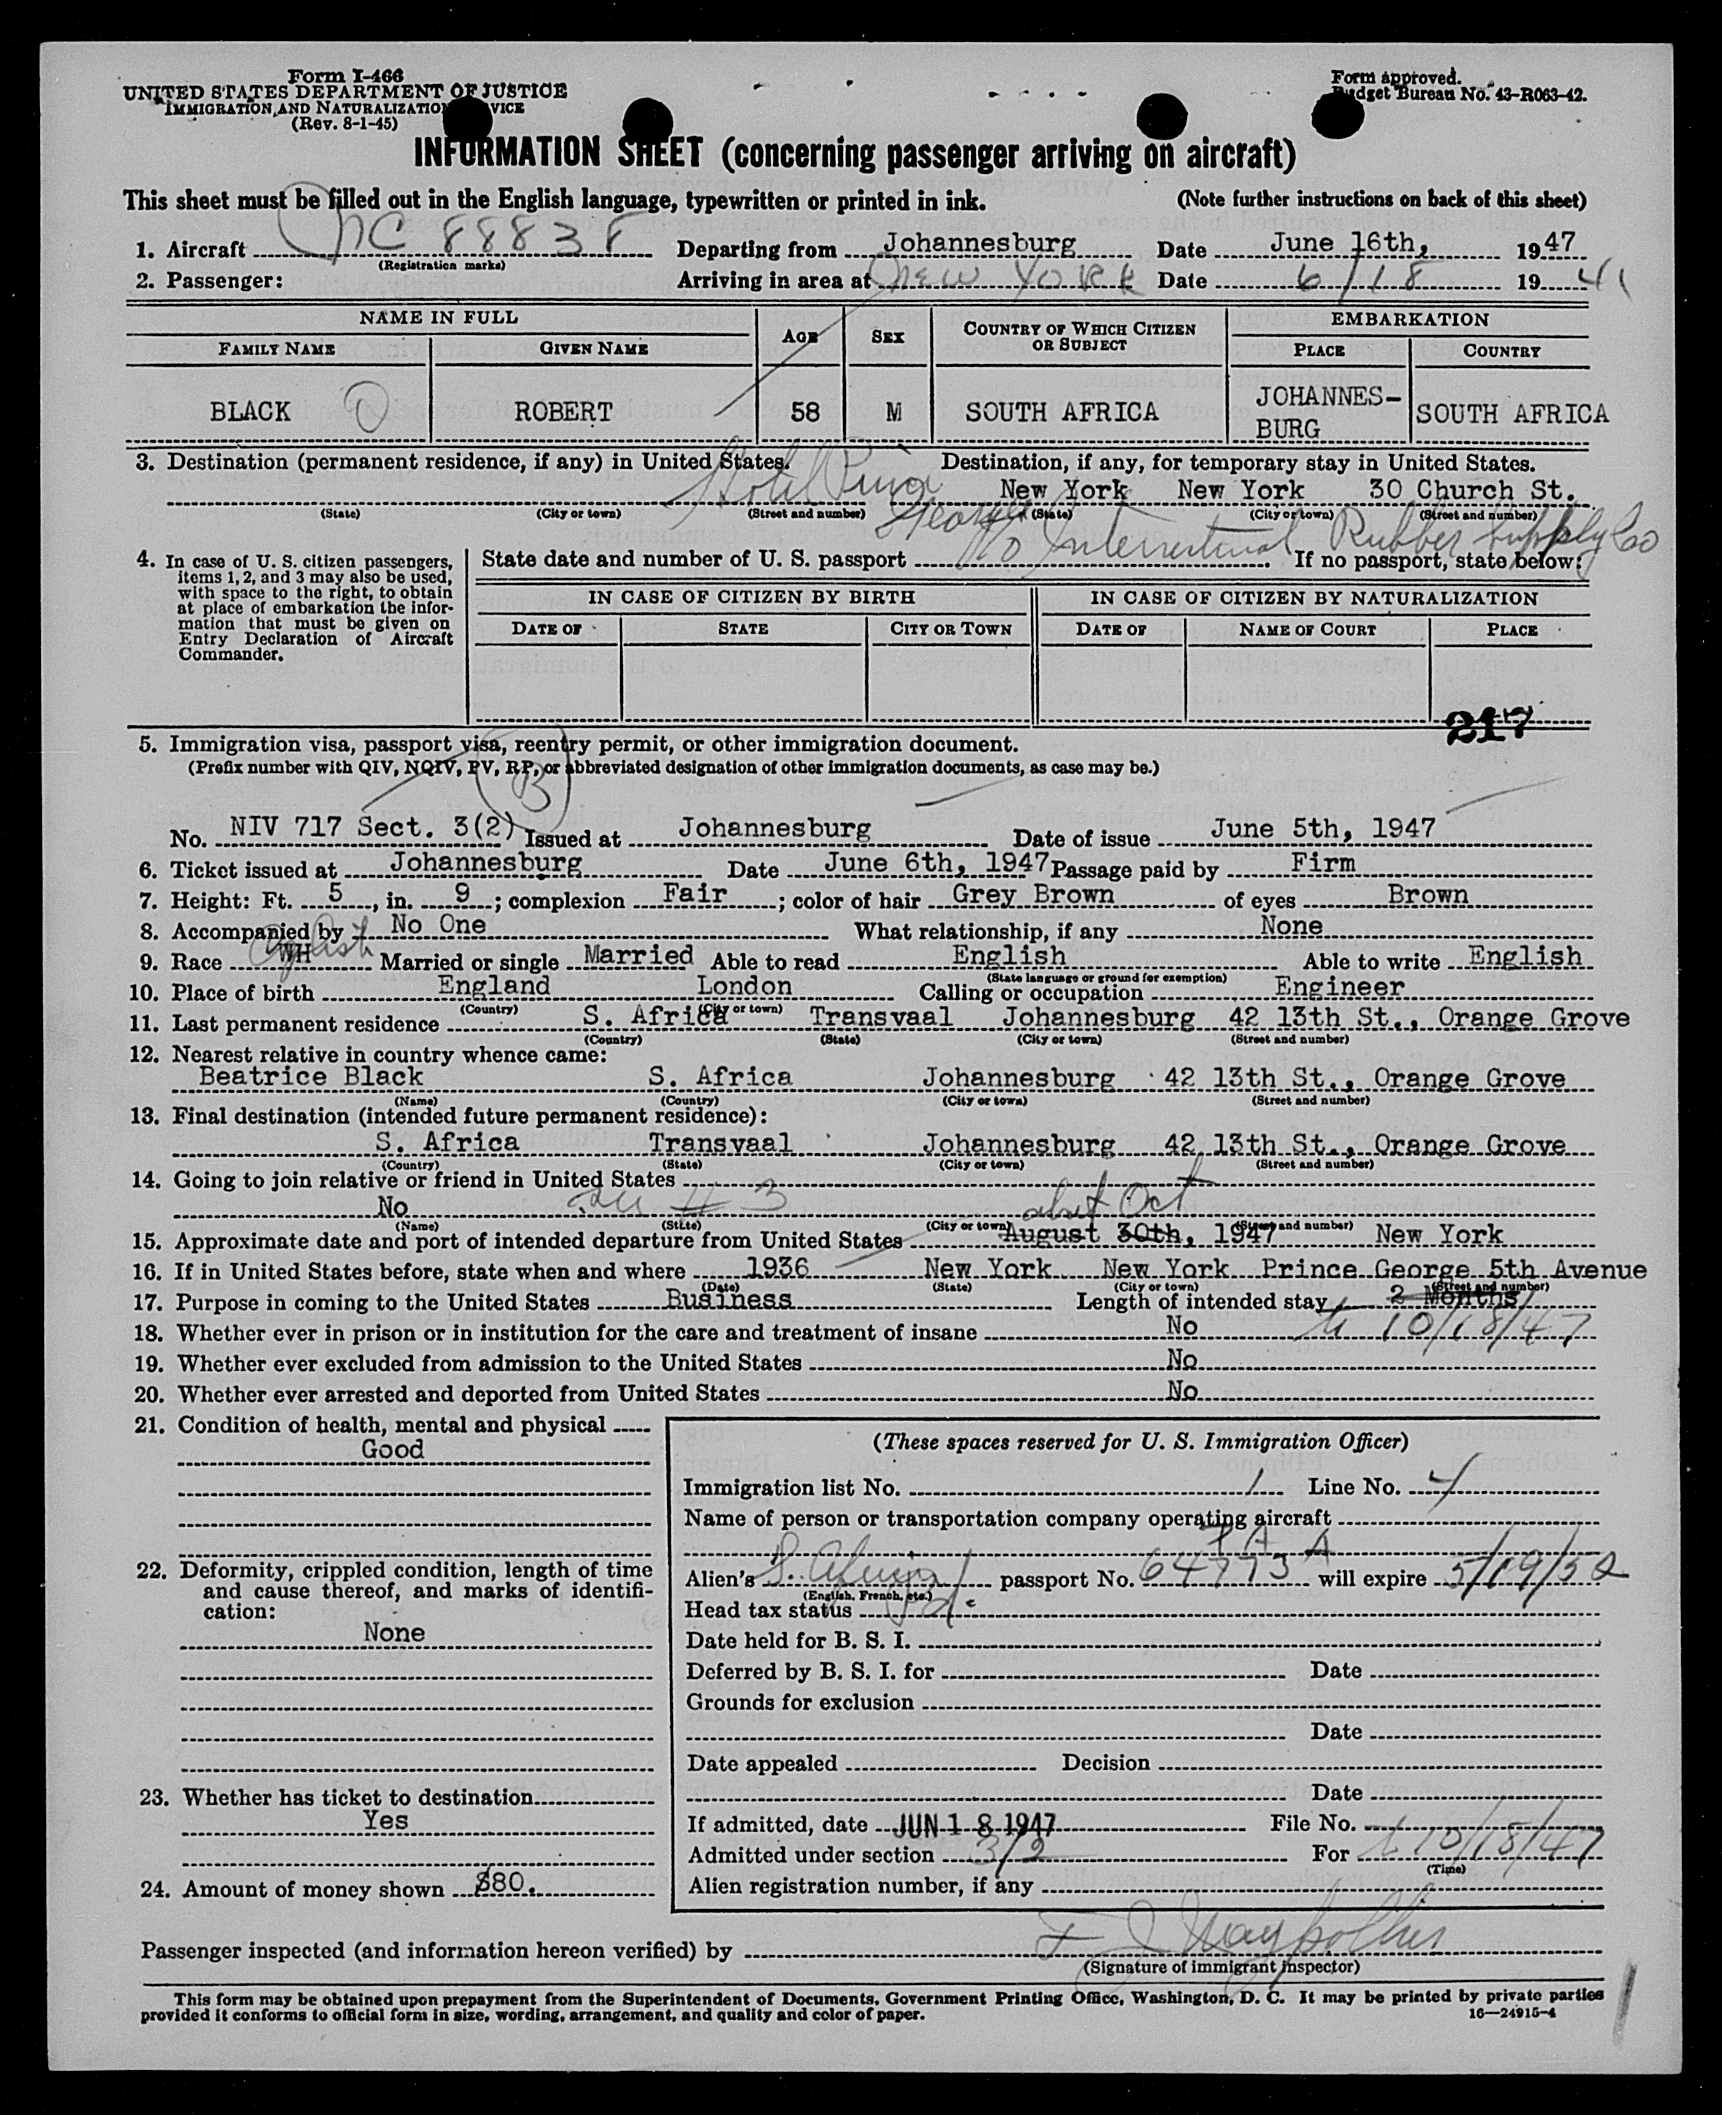 Form I-466
UNITED STATES DEPARTMENT OF JUSTICE
IMMIGRATION AND NATURALIZATION SERVICE
(Rev. 8-1-45)
Form approved.
Budget Bureau No. 43-R063-42.
INFORMATION SHEET (concerning passenger arriving on aircraft)
This sheet must be filled out in the English language, typewritten or printed in ink. (Note further instructions on back of this sheet)
1. Aircraft NC 88838 Departing from Johannesburg Date June 16th, 1947
(Registration marks)
2. Passenger: Arriving in area at New York Date 6/18 19
NAME IN FULL AGE SEX COUNTRY OF WHICH CITIZEN OR SUBJECT EMBARKATION
FAMILY NAME GIVEN NAME PLACE COUNTRY
BLACK ROBERT 58 M SOUTH AFRICA JOHANNES-BURG SOUTH AFRICA
3. Destination (permanent residence, if any) in United States. Destination, if any, for temporary stay in United States.
Hotel Prince George New York New York 30 Church St.
(State) (City or town) (Street and number) (State) (City or town) (Street and number)
c/o International Rubber Supply Co
4. In case of U. S. citizen passengers, items 1, 2, and 3 may also be used, with space to the right, to obtain at place of embarkation the information that must be given on Entry Declaration of Aircraft Commander.
State date and number of U. S. passport If no passport, state below:
IN CASE OF CITIZEN BY BIRTH IN CASE OF CITIZEN BY NATURALIZATION
DATE OF STATE CITY OR TOWN DATE OF NAME OF COURT PLACE
217
5. Immigration visa, passport visa, reentry permit, or other immigration document.
(Prefix number with QIV, NQIV, PV, RP, or abbreviated designation of other immigration documents, as case may be.)
B
No. NIV 717 Sect. 3(2) Issued at Johannesburg Date of issue June 5th, 1947
6. Ticket issued at Johannesburg Date June 6th, 1947 Passage paid by Firm
7. Height: Ft. 5, in. 9; complexion Fair; color of hair Grey Brown of eyes Brown
8. Accompanied by No One What relationship, if any None
9. Race WH English Married or single Married Able to read English Able to write English
(State language or ground for exemption)
10. Place of birth England London Calling or occupation Engineer
(Country) (City or town)
11. Last permanent residence S. Africa Transvaal Johannesburg 42 13th St., Orange Grove
(Country) (State) (City or town) (Street and number)
12. Nearest relative in country whence came:
Beatrice Black S. Africa Johannesburg 42 13th St., Orange Grove
(Name) (Country) (City or town) (Street and number)
13. Final destination (intended future permanent residence):
S. Africa Transvaal Johannesburg 42 13th St., Orange Grove
(Country) (State) (City or town) (Street and number)
14. Going to join relative or friend in United States
No see # 3 abut Oct
(Name) (State) (City or town) (Street and number)
15. Approximate date and port of intended departure from United States August 30th, 1947 New York
16. If in United States before, state when and where 1936 New York New York Prince George 5th Avenue
(Date) (State) (City or town) (Street and number)
17. Purpose in coming to the United States Business Length of intended stay 2 Months
18. Whether ever in prison or in institution for the care and treatment of insane No to 10/18/47
19. Whether ever excluded from admission to the United States No
20. Whether ever arrested and deported from United States No
21. Condition of health, mental and physical
Good
22. Deformity, crippled condition, length of time and cause thereof, and marks of identification:
None
23. Whether has ticket to destination
Yes
24. Amount of money shown $80.
(These spaces reserved for U. S. Immigration Officer)
Immigration list No. 1 Line No. 4
Name of person or transportation company operating aircraft
P A A
Alien's S. African passport No. 64773 will expire 5/19/52
(English, French, etc.)
Head tax status
Date held for B. S. I.
Deferred by B. S. I. for Date
Grounds for exclusion
Date
Date appealed Decision
Date
If admitted, date JUN 18 1947 File No.
Admitted under section 3/2 For to 10/18/47
(Time)
Alien registration number, if any
Passenger inspected (and information hereon verified) by
(Signature of immigrant inspector)
This form may be obtained upon prepayment from the Superintendent of Documents, Government Printing Office, Washington, D. C. It may be printed by private parties
provided it conforms to official form in size, wording, arrangement, and quality and color of paper. 16—24915-4